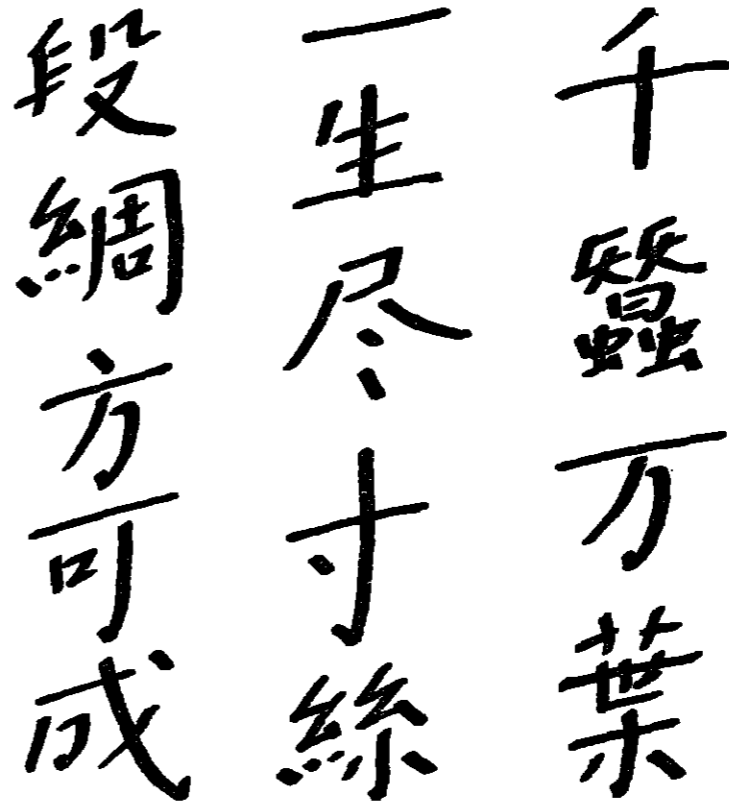 千蠶万葉
一生尽寸絲
段綢方可成